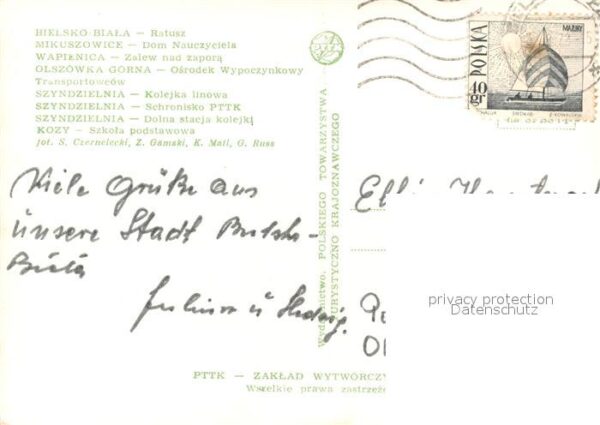 BIELSKO-BIAŁA — Ratusz
MIKUSZOWICE — Dom Nauczyciela
WAPIENICA — Zalew nad zaporą
OLSZÓWKA GÓRNA — Ośrodek Wypoczynkowy
Transportowców
SZYNDZIELNIA — Kolejka linowa
SZYNDZIELNIA — Schronisko PTTK
SZYNDZIELNIA — Dolna stacja kolejki
KOZY — Szkoła podstawowa
fot. S. Czernelecki, Z. Gamski, K. Mali, G. Russ
PTTK
MAZURY
POLSKA
40 gr
Viele Grüße aus
unsere Stadt
Biała
u
Wydawnictwo. POLSKIEGO TOWARZYSTWA
TURYSTYCZNO KRAJOZNAWCZEGO
privacy protection
Datenschutz
PTTK — ZAKŁAD WYTWÓRCZ
Wszelkie prawa zastrzeże